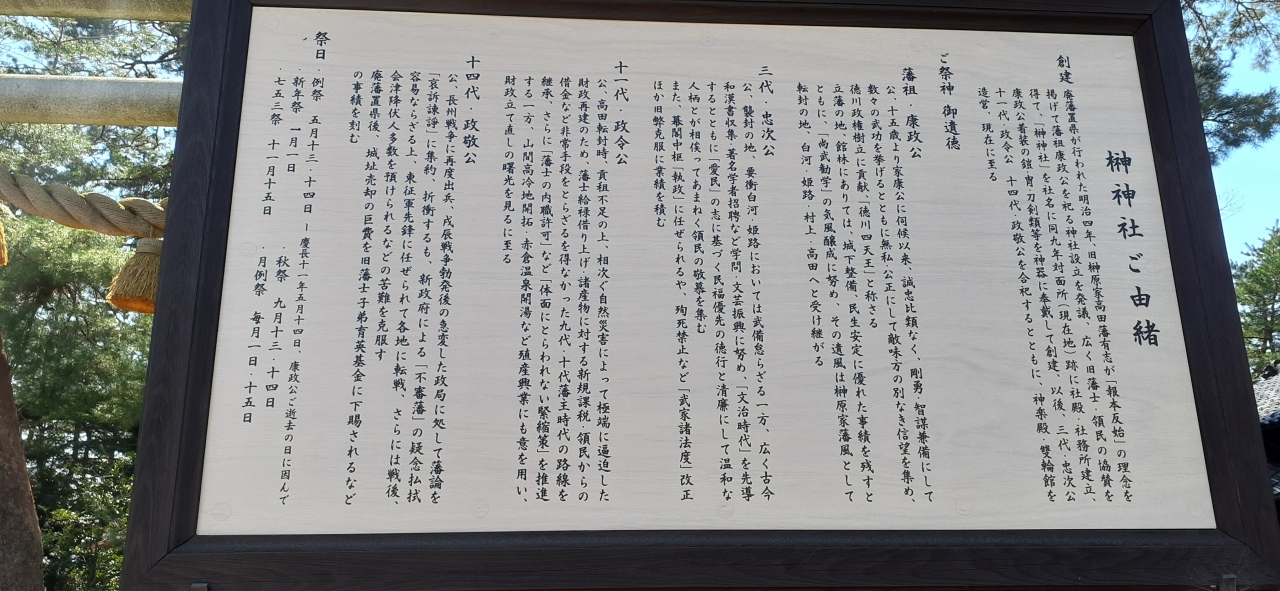 榊神社ご由緒
創建 廃藩置県が行われた明治四年、旧榊原家高田藩有志が「報本反始」の理念を
掲げて藩祖康政公を祀る神社設立を発議、広く旧藩士・領民の協賛を
得て、「榊神社」を社名に同九年対面所(現在地)跡に社殿、社務所建立、
康政公着装の鎧・冑・刀剣類等を神器に奉戴して創建、以後、三代・忠次公
十一代、政令公 十四代・政敬公を合祀するとともに、神楽殿、雙輪館を
造営、現在に至る
ご祭神 御遺徳
藩祖・康政公
公、十五歳より家康公に伺候以来、誠忠比類なく、剛勇・智謀兼備にして
数々の武功を挙げるとともに無私・公正にして敵味方の別なき信望を集め、
徳川政権樹立に貢献、「徳川四天王」と称さる
立藩の地、館林にありては、城下整備、民生安定に優れた事績を残すと
ともに、「尚武勧学」の気風醸成に努め、その遺風は榊原家藩風として
転封の地、白河・姫路・村上・高田へと受け継がる
三代・忠次公
公、襲封の地、要衝白河・姫路においては武備怠らざる一方、広く古今
和漢書収集、著名学者招聘など学問・文芸振興に努め、「文治時代」を先導
するとともに「愛民」の志に基づく民福優先の徳行と清廉にして温和な
人柄とが相俟ってあまねく領民の敬慕を集む
また、幕閣中枢「執政」に任ぜられるや、殉死禁止など「武家諸法度」改正
ほか旧弊克服に業績を積む
十一代・政令公
公、高田転封時、貢租不足の上、相次ぐ自然災害によって極端に逼迫した
財政再建のため、藩士給禄借り上げ・諸産物に対する新規課税・領民からの
借金など非常手段をとらざるを得なかった九代・十代藩主時代の路線を
継承、さらに「藩士の内職許可」など「体面にとらわれない緊縮策」を推進
する一方、山間高冷地開拓・赤倉温泉開湯など殖産興業にも意を用い、
財政立て直しの曙光を見るに至る
十四代・政敬公
公、長州戦争に再度出兵、戊辰戦争勃発後の急変した政局に処して藩論を
「哀訴諫諍」に集約、折衝するも、新政府による「不審藩」の疑念払拭
容易ならざる上、東征軍先鋒に任ぜられて各地に転戦、さらには戦後、
会津降伏人多数を預けられるなどの苦難を克服す
廃藩置県後、城址売却の巨費を旧藩士子弟育英基金に下賜されるなど
の事績を刻む
祭日 ・例祭 五月十三・十四日 ー慶長十一年五月十四日、康政公ご逝去の日に因んで
・新年祭 一月一日 ・秋祭 九月十三・十四日
・七五三祭 十一月十五日 ・月例祭 毎月一日・十五日